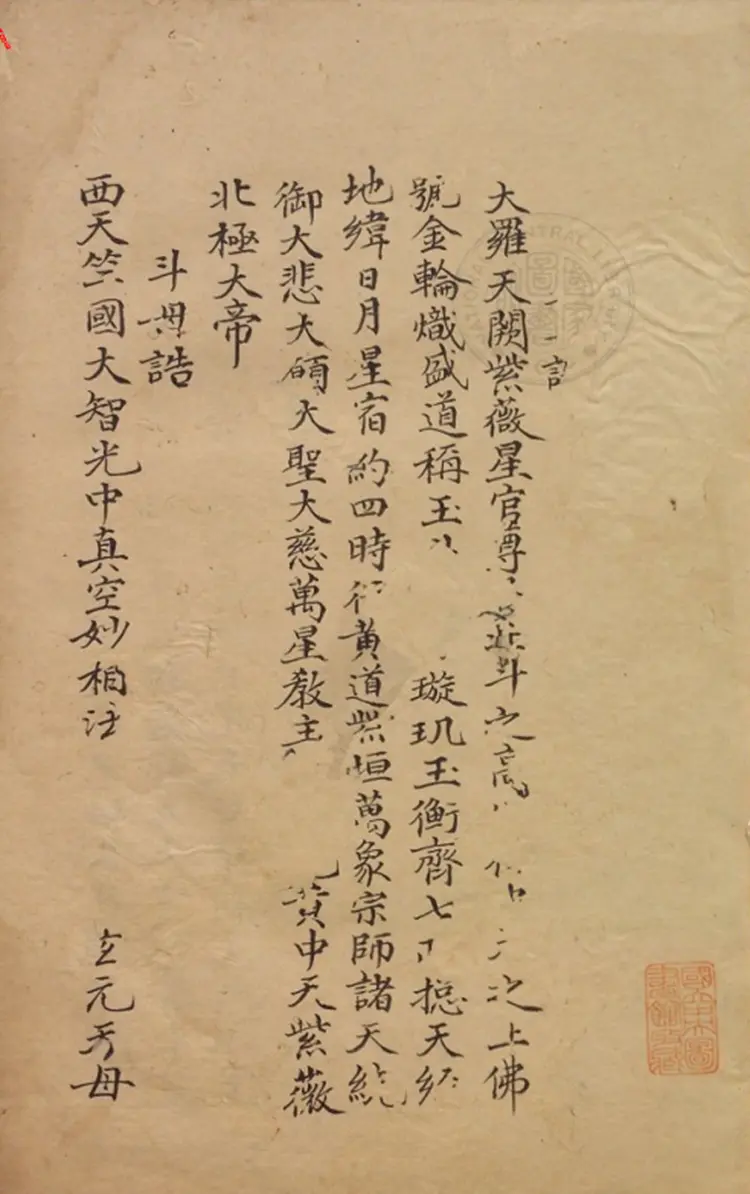 大羅天闕紫薇星官尊斗之高次上佛
號金輪熾盛道稱玉璇玑玉衡齊七摠天
地緯日月星宿約四時行黃道紫恒萬象宗師諸天統
御大悲大願大聖大慈萬星教主中天紫薇
北極大帝
斗母誥
西天竺國大智光中真空妙相元母